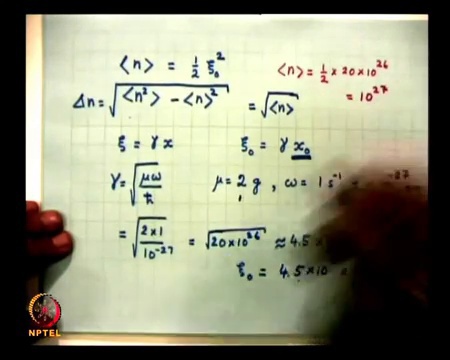 ⟨n⟩ = 1/2 ξ₀²
⟨n⟩ = 1/2 × 20 × 10²⁶
= 10²⁷
Δn = √(⟨n²⟩ − ⟨n⟩²) = √⟨n⟩
ξ = γ x ξ₀ = γ x₀
γ = √(μω/ħ) μ = 2 g, ω = 1 s⁻¹
= √(2×1/10⁻²⁷) = √(20×10²⁶) ≈ 4.5
ξ₀ = 4.5×10
NPTEL